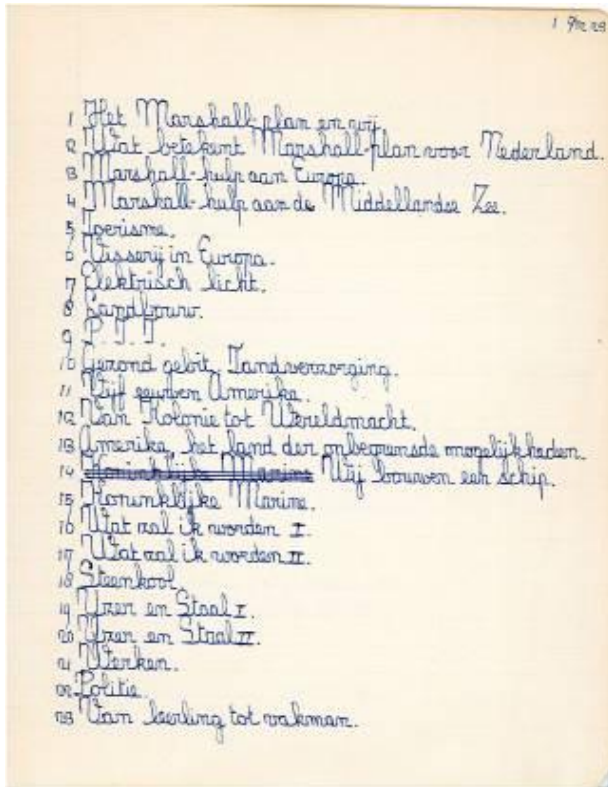 1 Het Marshall-plan en wij
2 Wat betekent Marshall-plan voor Nederland.
3 Marshall-hulp aan Europa.
4 Marshall-hulp aan de Middellandse Zee.
5 Toerisme.
6 Visserij in Europa.
7 Elektrisch licht.
8 Landbouw.
9 P.T.T.
10 Gezond gebit, Tandverzorging.
11 Vijf eeuwen Amerika.
12 Van Kolonie tot Wereldmacht.
13 Amerika, het land der onbegrensde mogelijkheden.
14 Koninklijke Marine Wij bouwen een schip.
15 Koninklijke Marine.
16 Wat zal ik worden I.
17 Wat zal ik worden II.
18 Steenkool
19 IJzer en Staal I.
20 IJzer en Staal II.
21 Werken.
22 Politie.
23 Van leerling tot vakman.